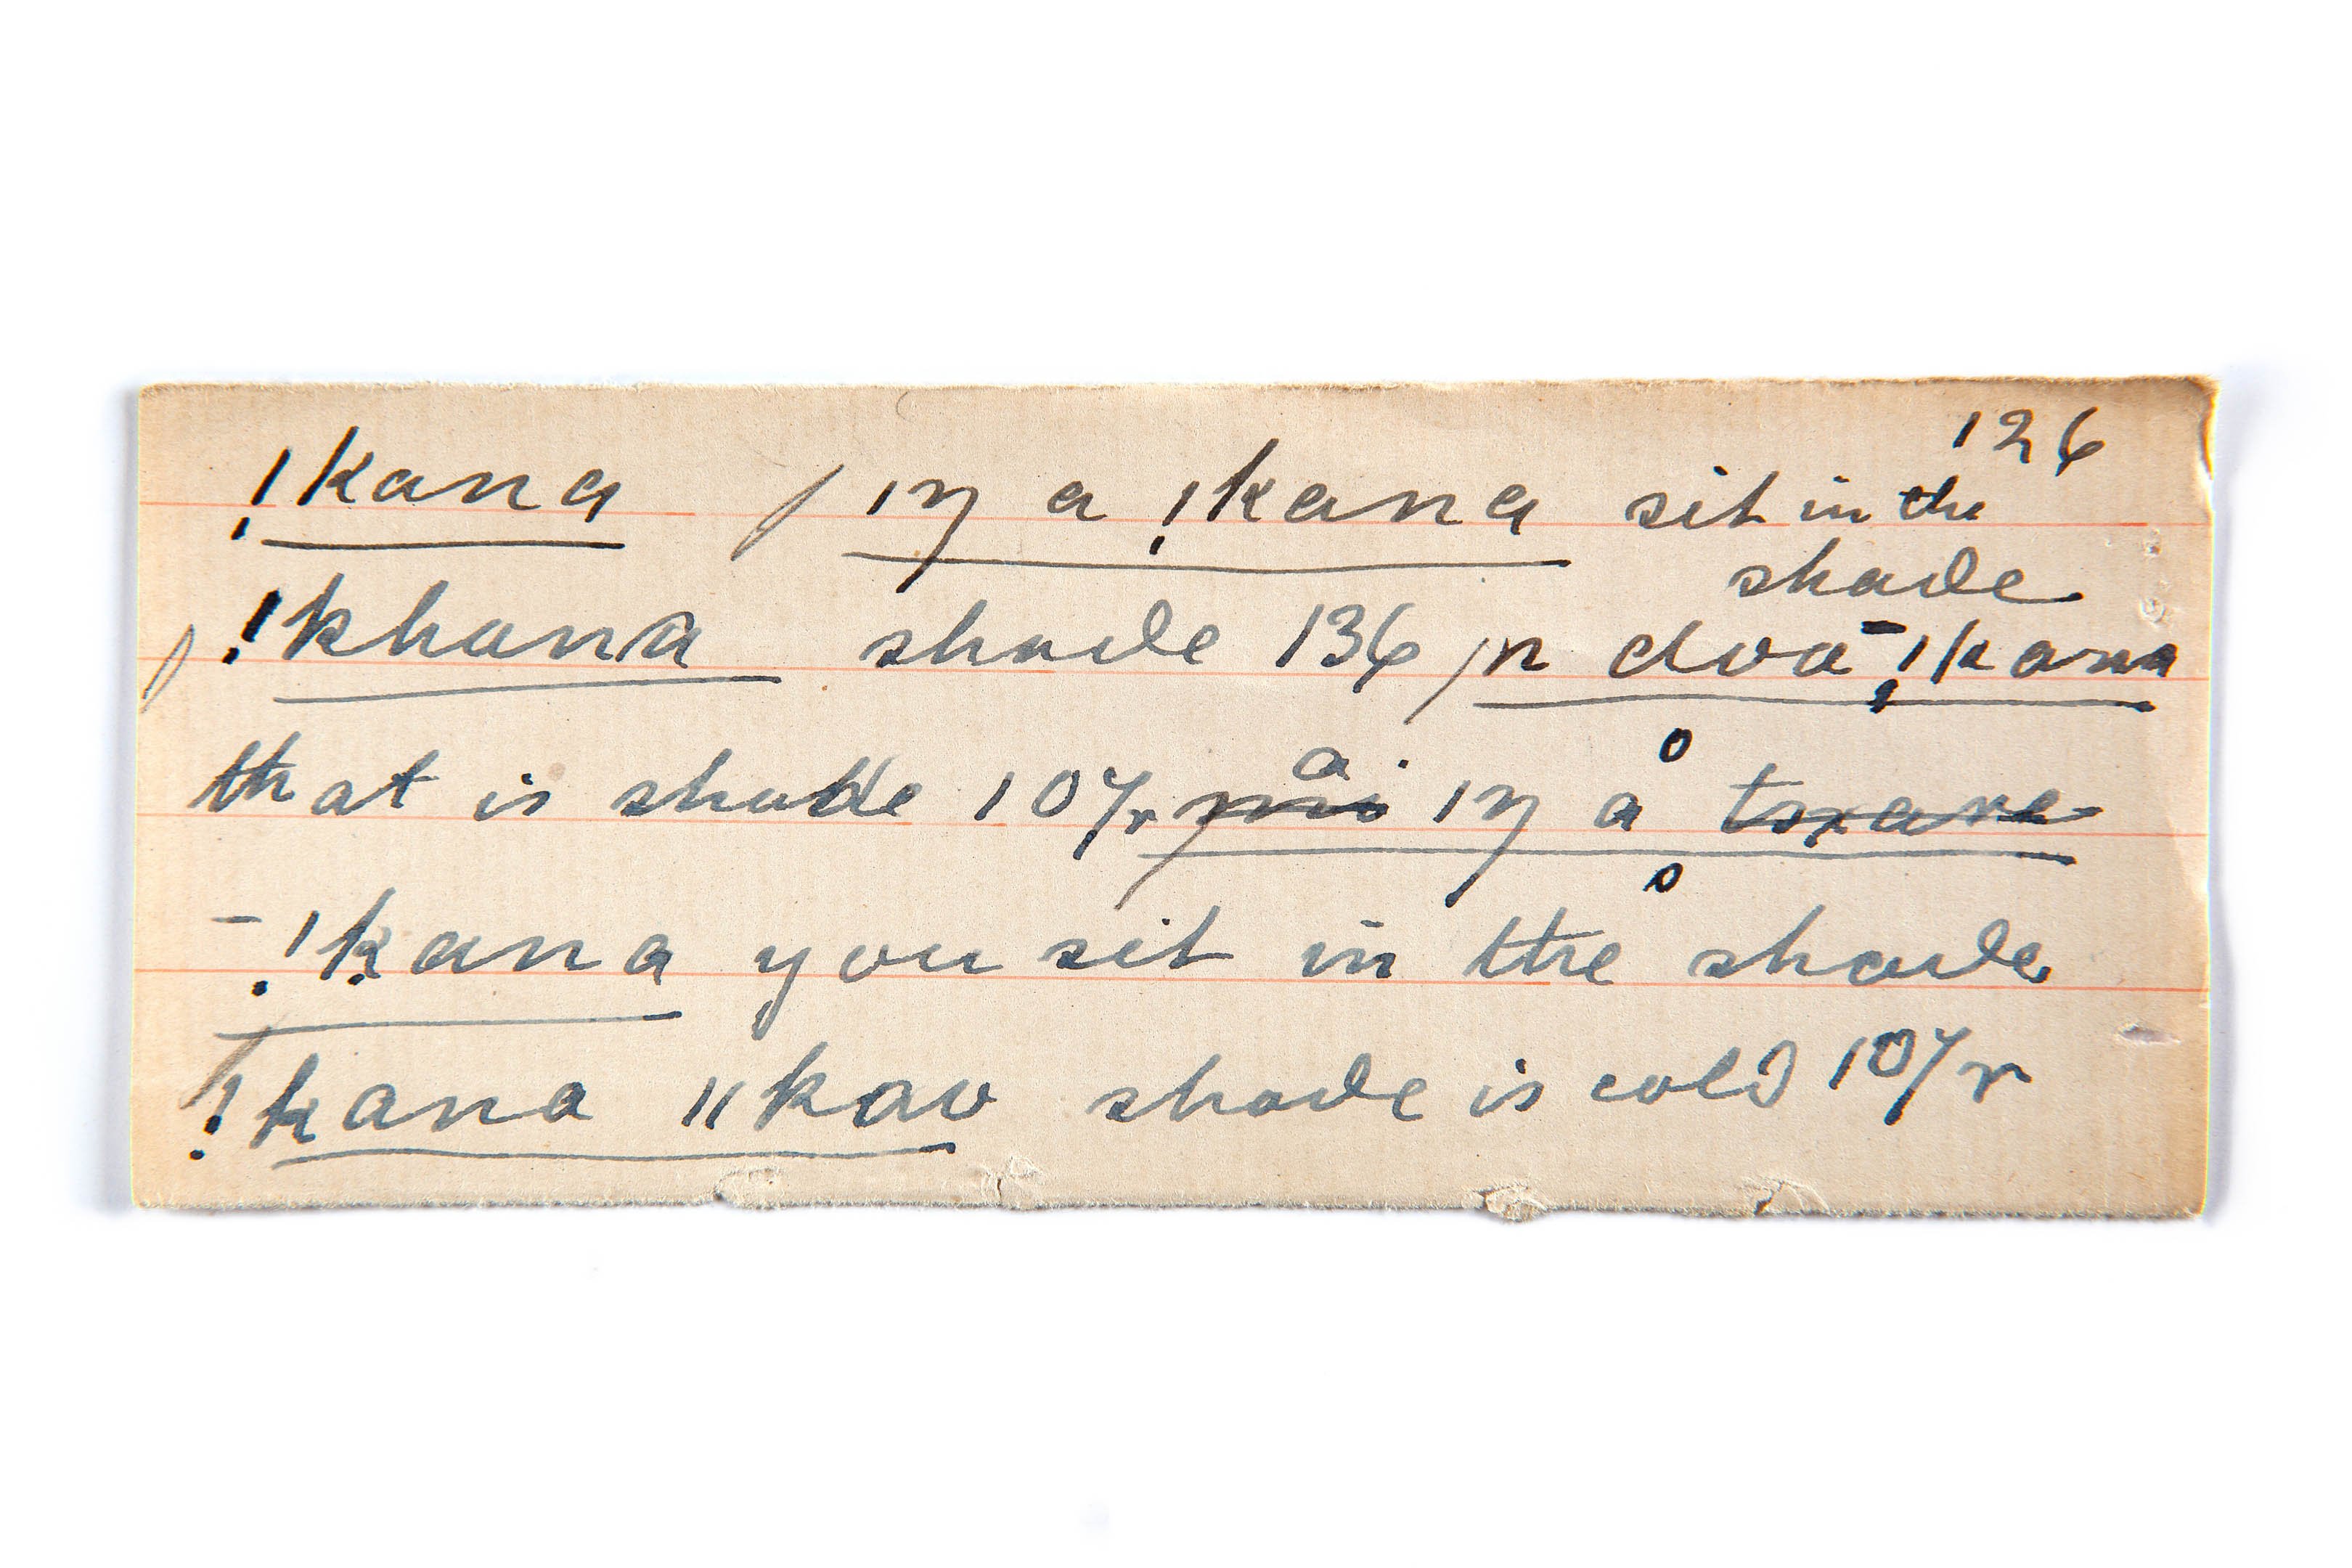 126
!kana / |ŋ a !kana sit in the
shade
/ !khana shade 136 / n doa !kana
that is shade 107r a |ŋ a
- !kana you sit in the shade
!kana ||kao shade is cold 107r